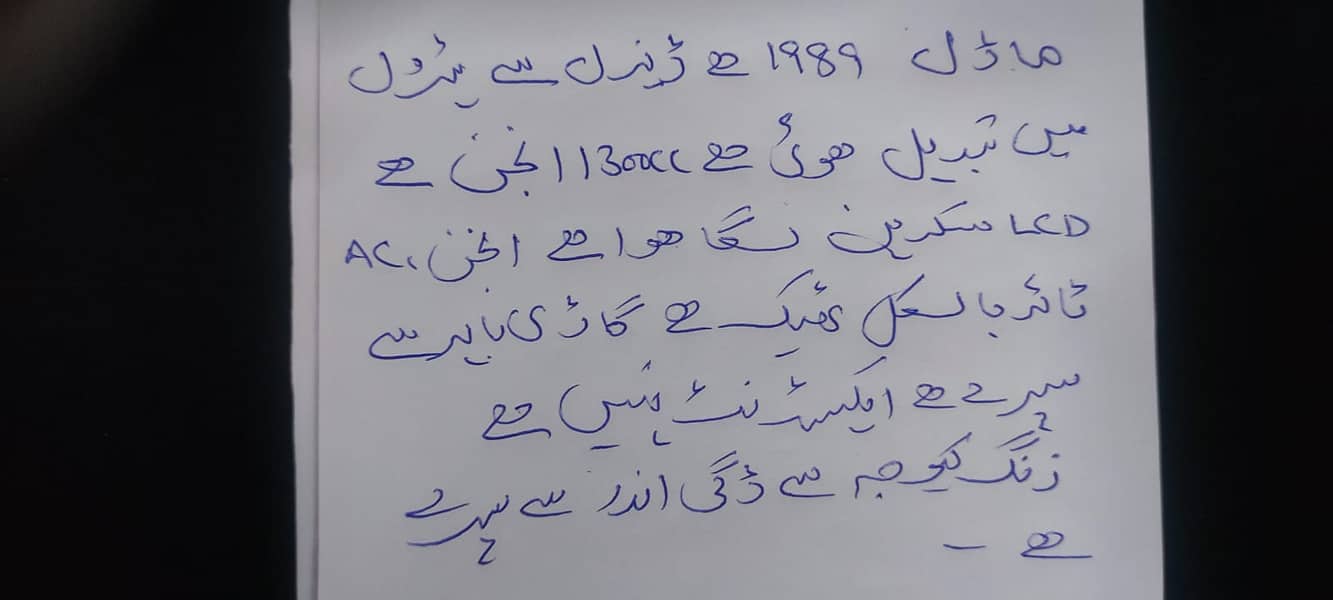 ماڈل 1989 ھے ڈیزل سے پٹرول
میں تبدیل ھوئ ھے 1300cc انجن ھے
LCD سکرین لگا ھوا ھے انجن، AC
ٹائر بالکل ٹھیک ھے گاڑی باہر سے
سپرے ھے ایکسیڈنٹ نہیں ھے
زنگ کیوجہ سے ڈگی اندر سے سپرے
ھے ۔